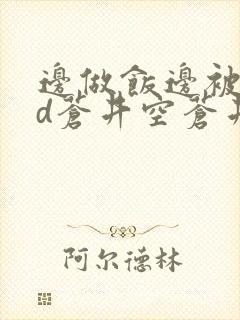 邊做飯邊被
d蒼井空蒼井
阿尔德林